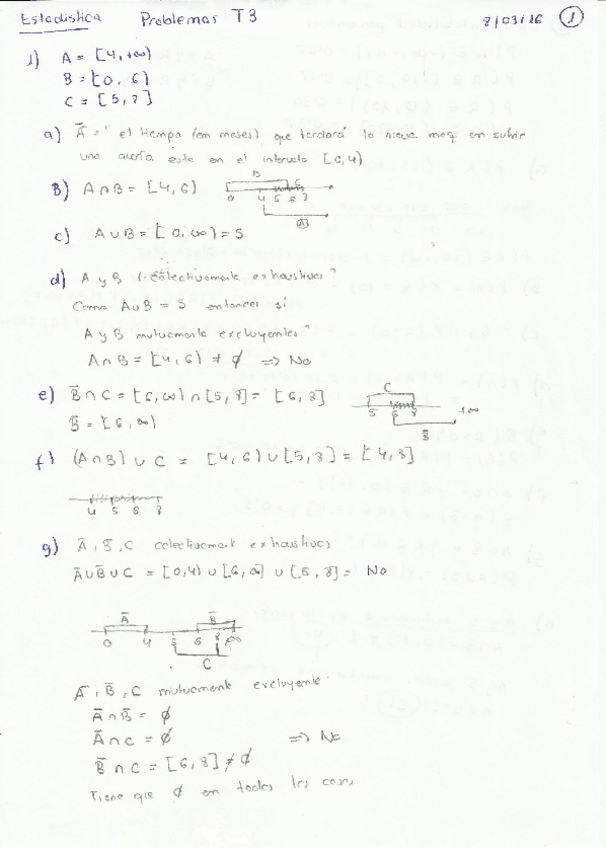 Estadística Problemas T3 8/03/16 1
1) A = [4, +∞)
B = [0, 6)
C = [5, 8]
a) Ā = " el tiempo (en meses) que tardará la nueva maq en sufrir
una avería este en el intervalo [0,4)
B) A ∩ B = [4, 6)
B
C
0 4 5 6 8
A
c) A ∪ B = [0, ∞) = S
d) A y B colectivamente exhaustivos?
Como A ∪ B = S entonces sí
A y B mutuamente excluyentes?
A ∩ B = [4, 6) ≠ ∅ => No
e) B̄ ∩ C = [6, ∞) ∩ [5, 8] = [6, 8]
B̄ = [6, ∞)
C
5 6 8 +∞
B̄
f) (A ∩ B) ∪ C = [4, 6) ∪ [5, 8] = [4, 8]
4 5 6 8
g) Ā, B̄, C colectivament exhaustivos
Ā ∪ B̄ ∪ C = [0,4) ∪ [6, ∞) ∪ [5, 8] = No
Ā B̄
0 4 5 6 8 ∞
C
Ā, B̄, C mutuamente excluyente
Ā ∩ B̄ = ∅
Ā ∩ C = ∅ => No
B̄ ∩ C = [6, 8] ≠ ∅
Tiene que ∅ en todos los casos